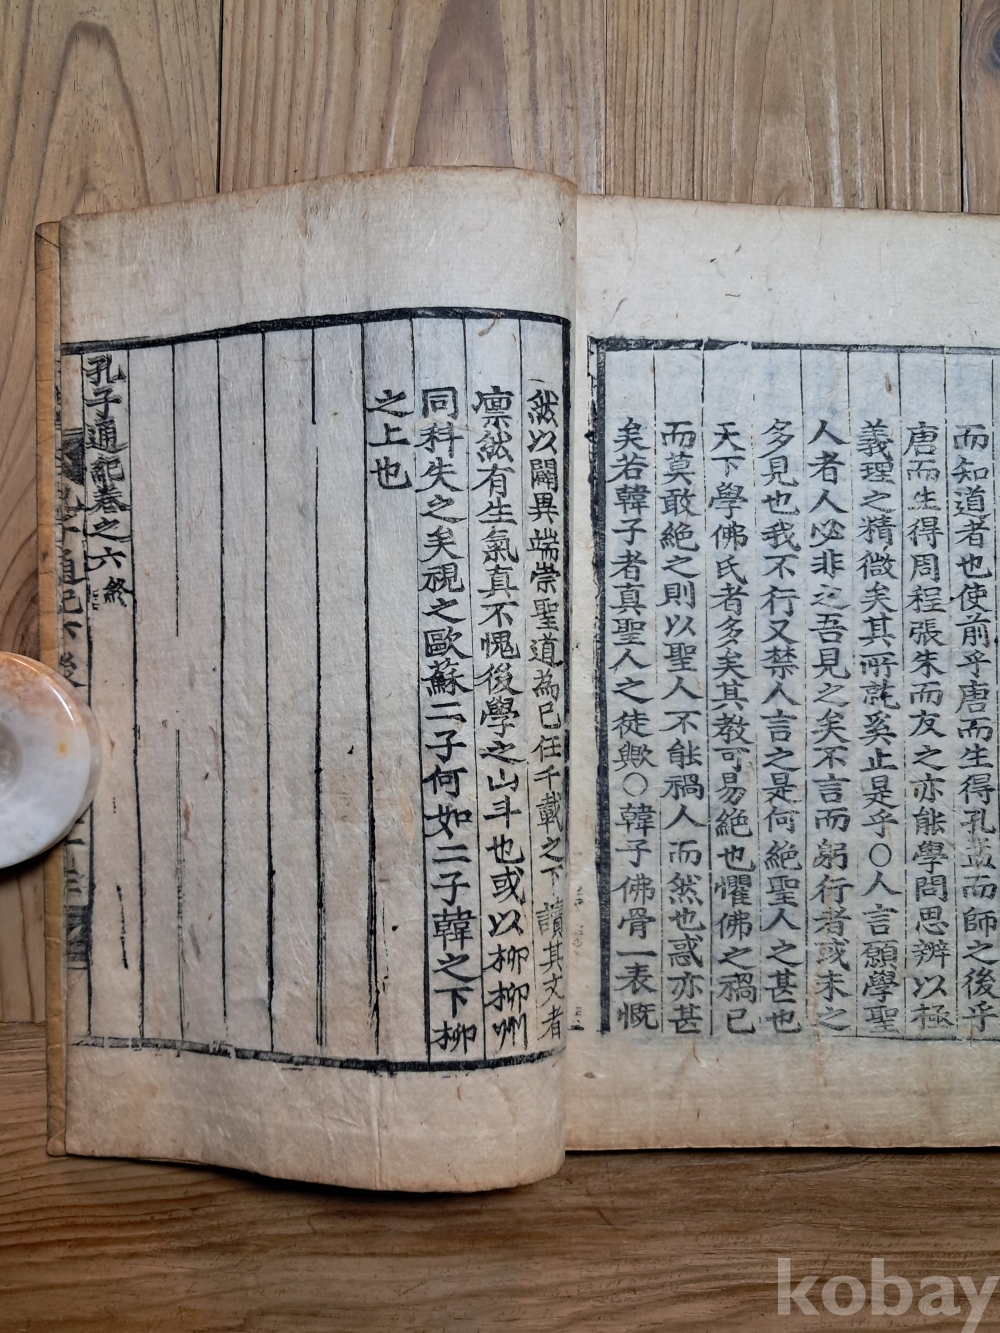 而知道者也使前乎唐而生得孔孟而師之後乎
唐而生得周程張朱而友之亦能學問思辨以極
義理之精微矣其所就奚止是乎○人言願學聖
人者人必非之吾見之矣不言而躬行者或未之
多見也我不行又禁人言之是何絶聖人之甚也
天下學佛氏者多矣其教可易絶也懼佛之禍已
而莫敢絶之則以聖人不能禍人而然也惑亦甚
矣若韓子者真聖人之徒歟○韓子佛骨一表慨
然以闢異端崇聖道為已任千載之下讀其文者
凛然有生氣真不愧後學之山斗也或以柳柳州
同科失之矣視之歐蘇二子何如二子韓之下柳
之上也
孔子通紀卷之六 終
通紀六 後
kobay